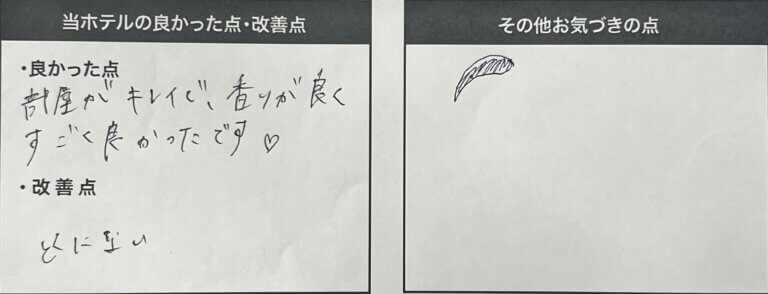 当ホテルの良かった点・改善点
・良かった点
部屋がキレイで、香りが良く
すごく良かったです♡
・改善点
とくにない
その他お気づきの点